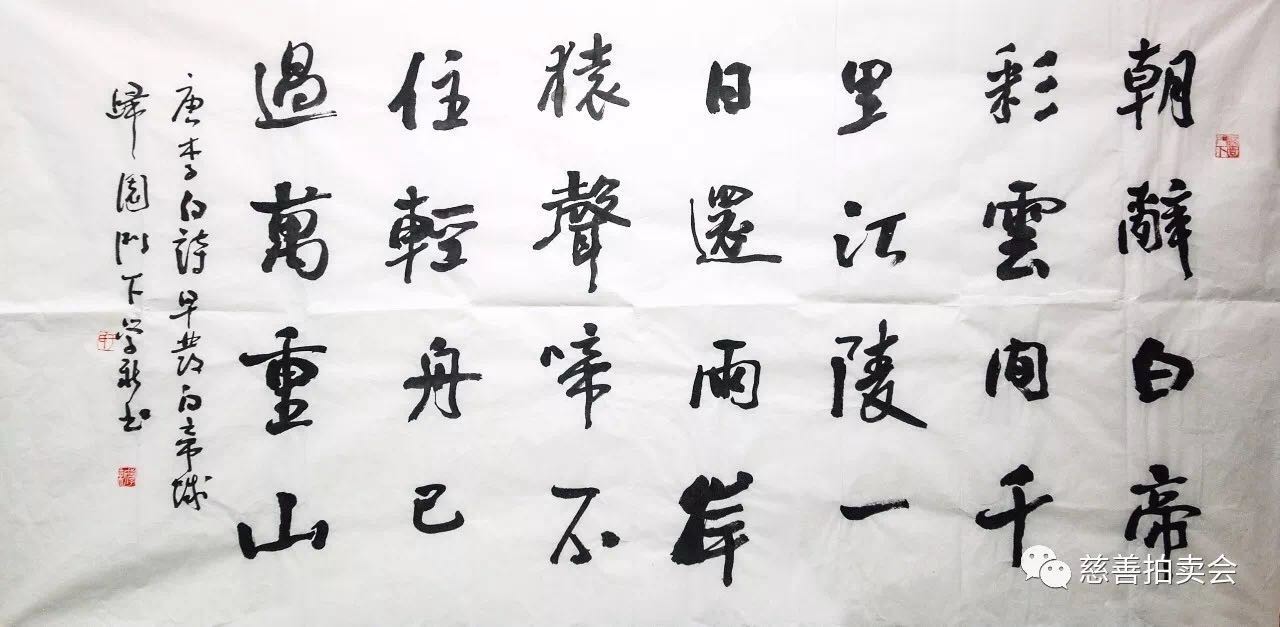 朝辭白帝
彩雲間千
里江陵一
日還兩岸
猿聲啼不
住輕舟已
過萬重山
唐李白詩早發白帝城
歸園門下學新書
慈善拍卖会